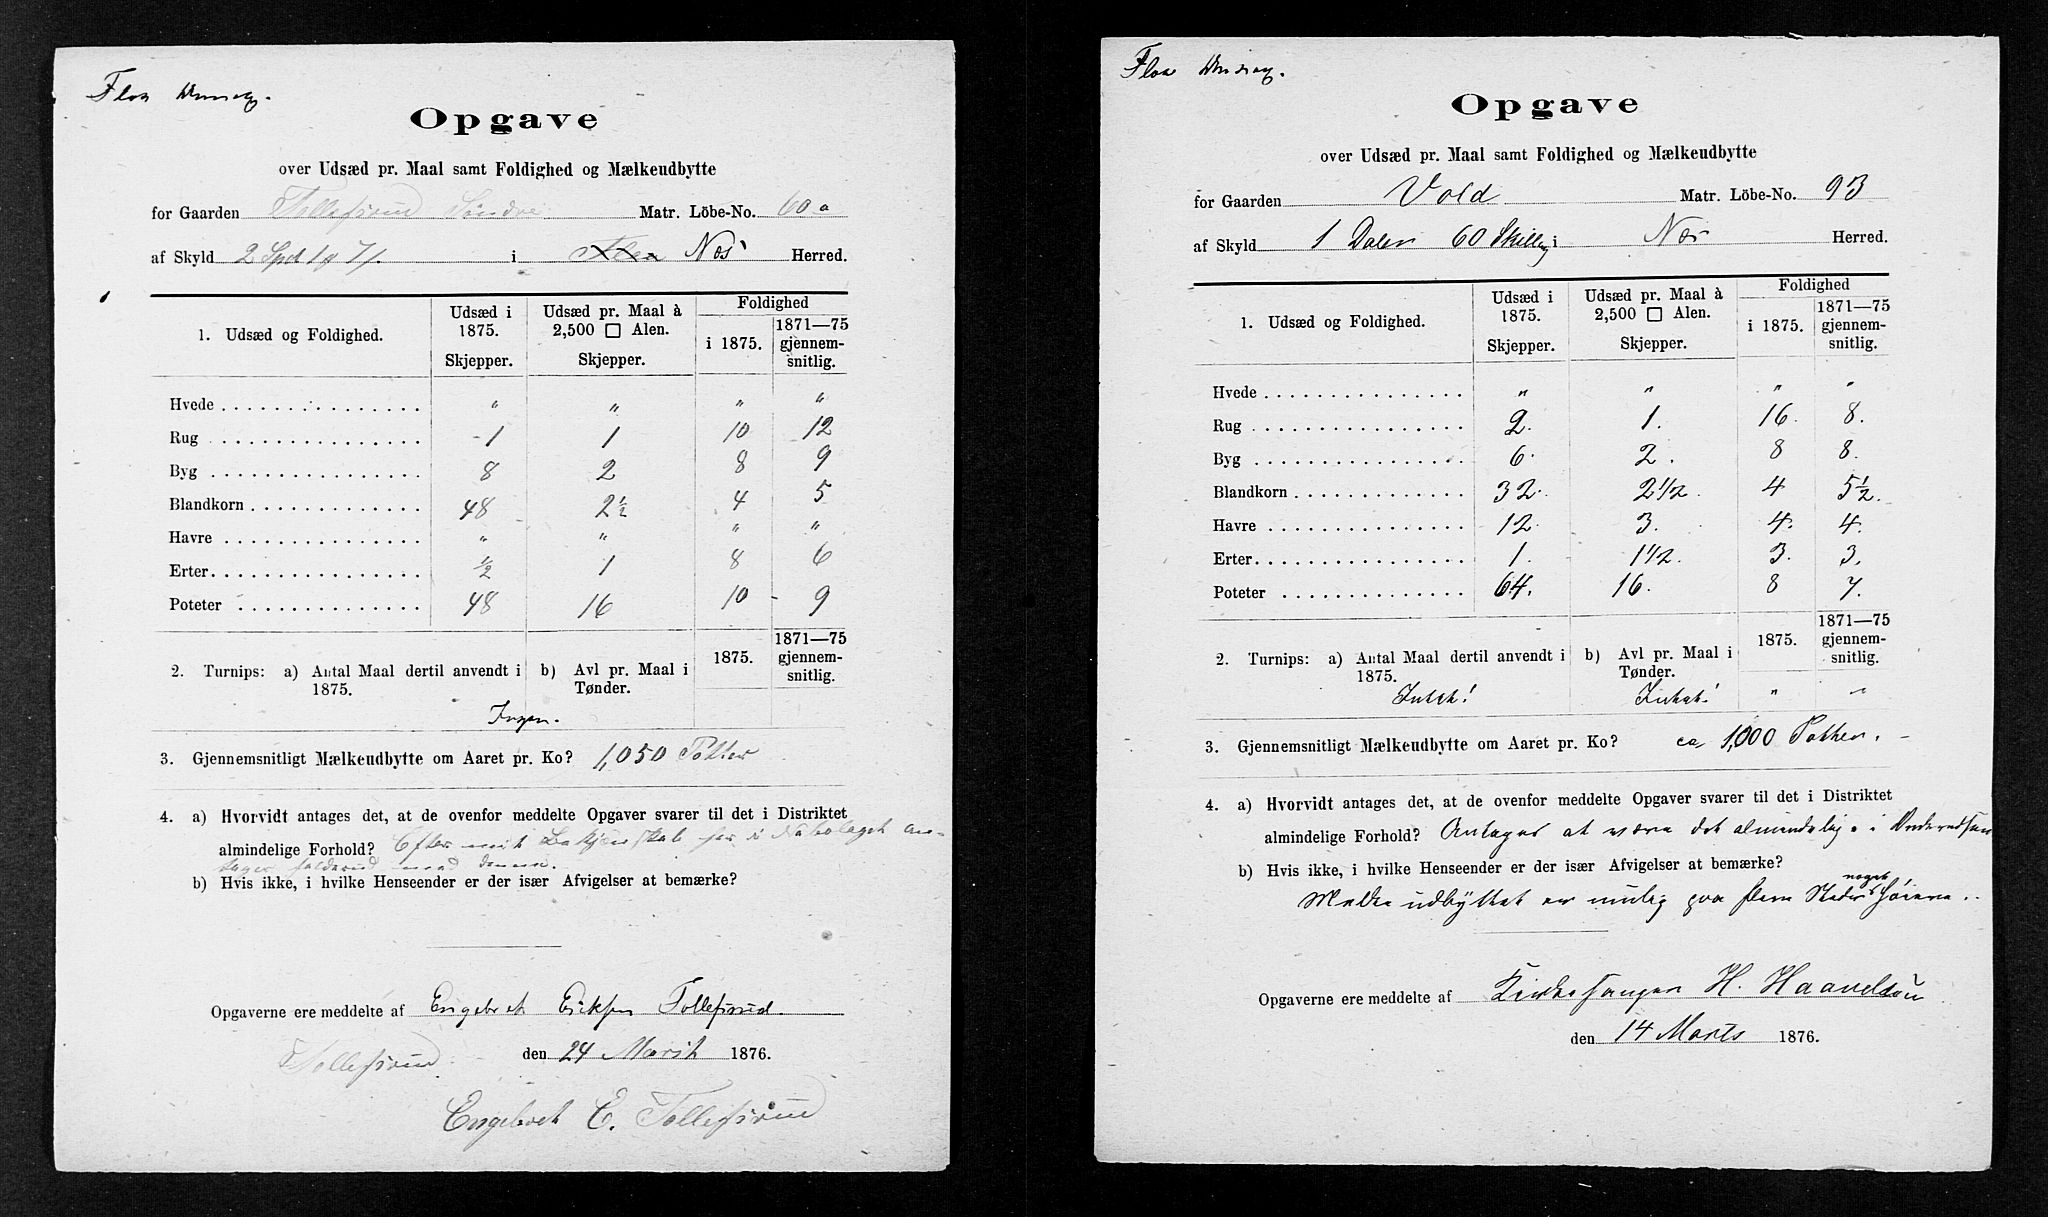 Flaa
Opgave
over Udsæd pr. Maal samt Foldighed og Mælkeudbytte
for Gaarden Tollefsrud Søndre Matr. Löbe-No. 60a
af Skyld 2 Spd 1 ß i Næs Herred.
1. Udsæd og Foldighed. Udsæd i 1875. Skjepper. Udsæd pr. Maal à 2,500 □ Alen. Skjepper. Foldighed i 1875. 1871—75 gjennemsnitlig.
Hvede " " " "
Rug 1 1 10 12
Byg 8 2 8 9
Blandkorn 48 2½ 4 5
Havre " " " "
Erter ½ 1 8 6
Poteter 48 16 10 9
2. Turnips: a) Antal Maal dertil anvendt i 1875. b) Avl pr. Maal i Tønder. 1875. 1871—75 gjennemsnitlig.
Ingen.
3. Gjennemsnitligt Mælkeudbytte om Aaret pr. Ko? 1,050 Potter
4. a) Hvorvidt antages det, at de ovenfor meddelte Opgaver svarer til det i Distriktet
almindelige Forhold? Efter mit Bekjenskab her i Nabolaget an-
tager med denne.
b) Hvis ikke, i hvilke Henseender er der især Afvigelser at bemærke?
Opgaverne ere meddelte af Engebret Eriksen Tollefsrud.
Tollefsrud den 24 Marts 1876.
Engebret E. Tollefsrud
Flaa
Opgave
over Udsæd pr. Maal samt Foldighed og Mælkeudbytte
for Gaarden Vold Matr. Löbe-No. 93
af Skyld 1 Daler 60 Skilling i Næs Herred.
1. Udsæd og Foldighed. Udsæd i 1875. Skjepper. Udsæd pr. Maal à 2,500 □ Alen. Skjepper. Foldighed i 1875. 1871—75 gjennemsnitlig.
Hvede " " " "
Rug 2. 1. 16. 8.
Byg 6. 2. 8 8.
Blandkorn 32. 2 1/2. 4 5½.
Havre 12. 3. 4. 4.
Erter 1. 1 1/2. 3. 3.
Poteter 64. 16. 8 7.
2. Turnips: a) Antal Maal dertil anvendt i 1875. b) Avl pr. Maal i Tønder. 1875. 1871—75 gjennemsnitlig.
Intet! Intet! " "
3. Gjennemsnitligt Mælkeudbytte om Aaret pr. Ko? ca 1,000 Potter.
4. a) Hvorvidt antages det, at de ovenfor meddelte Opgaver svarer til det i Distriktet
almindelige Forhold? Antages at være det almindelige i
b) Hvis ikke, i hvilke Henseender er der især Afvigelser at bemærke?
Melkeudbyttet er mulig paa flere Steder noget høiere.
Opgaverne ere meddelte af Kirkesanger H. Haavelsen
den 14 Marts 1876.